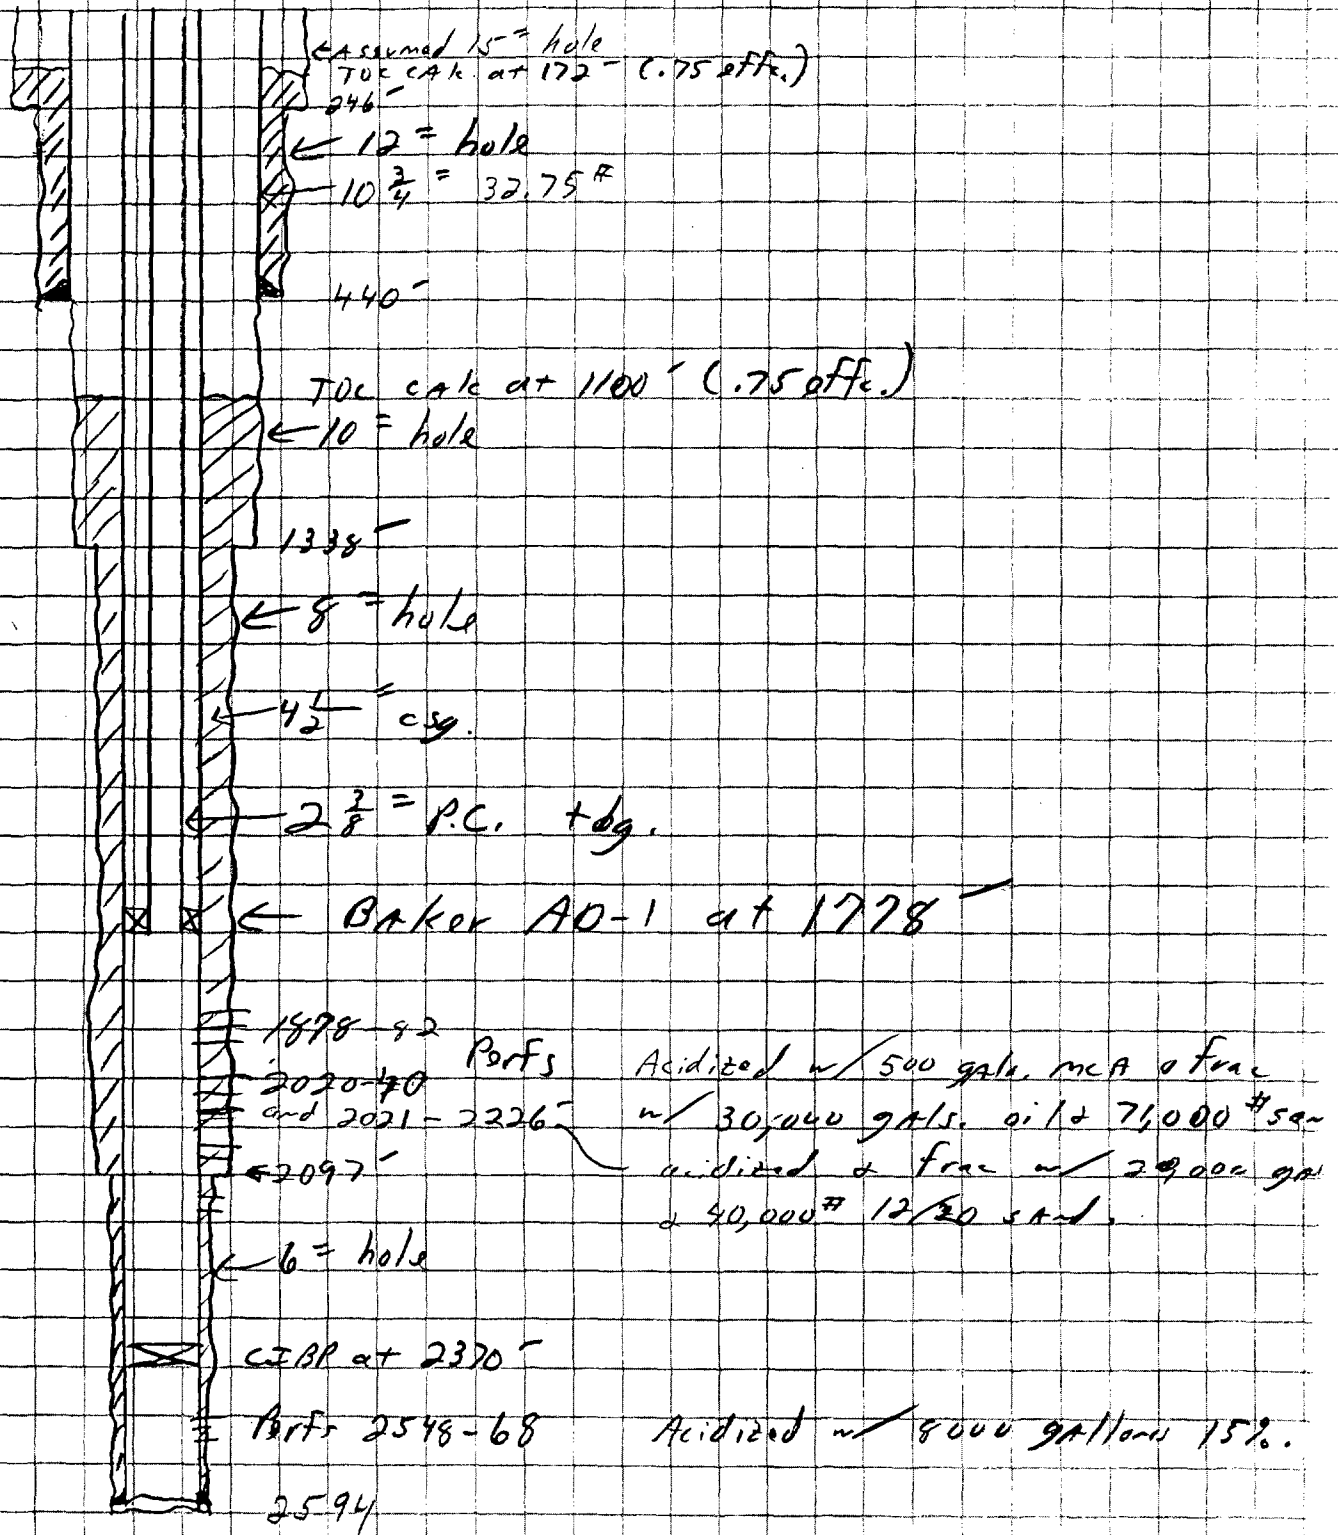 Assumed 15" hole
TOC CALC at 172' (.75 effc.)
246'
12" hole
10 3/4" 32.75#
440'
TOC CALC at 1100' (.75 effc.)
10" hole
1338'
8" hole
4 1/2" csg.
2 3/8" P.C. tbg.
BAKER AD-1 at 1778'
1878-82
Perfs
2020-40
and 2021-2226'
Acidized w/ 500 gals. MCA & Frac
w/ 30,000 gals. oil & 71,000# san
acidized & frac w/ 20,000 gal
& 40,000# 12/20 sand.
2097'
6" hole
CIBP at 2370'
Perfs 2548-68 Acidized w/ 8000 gallons 15%.
2594